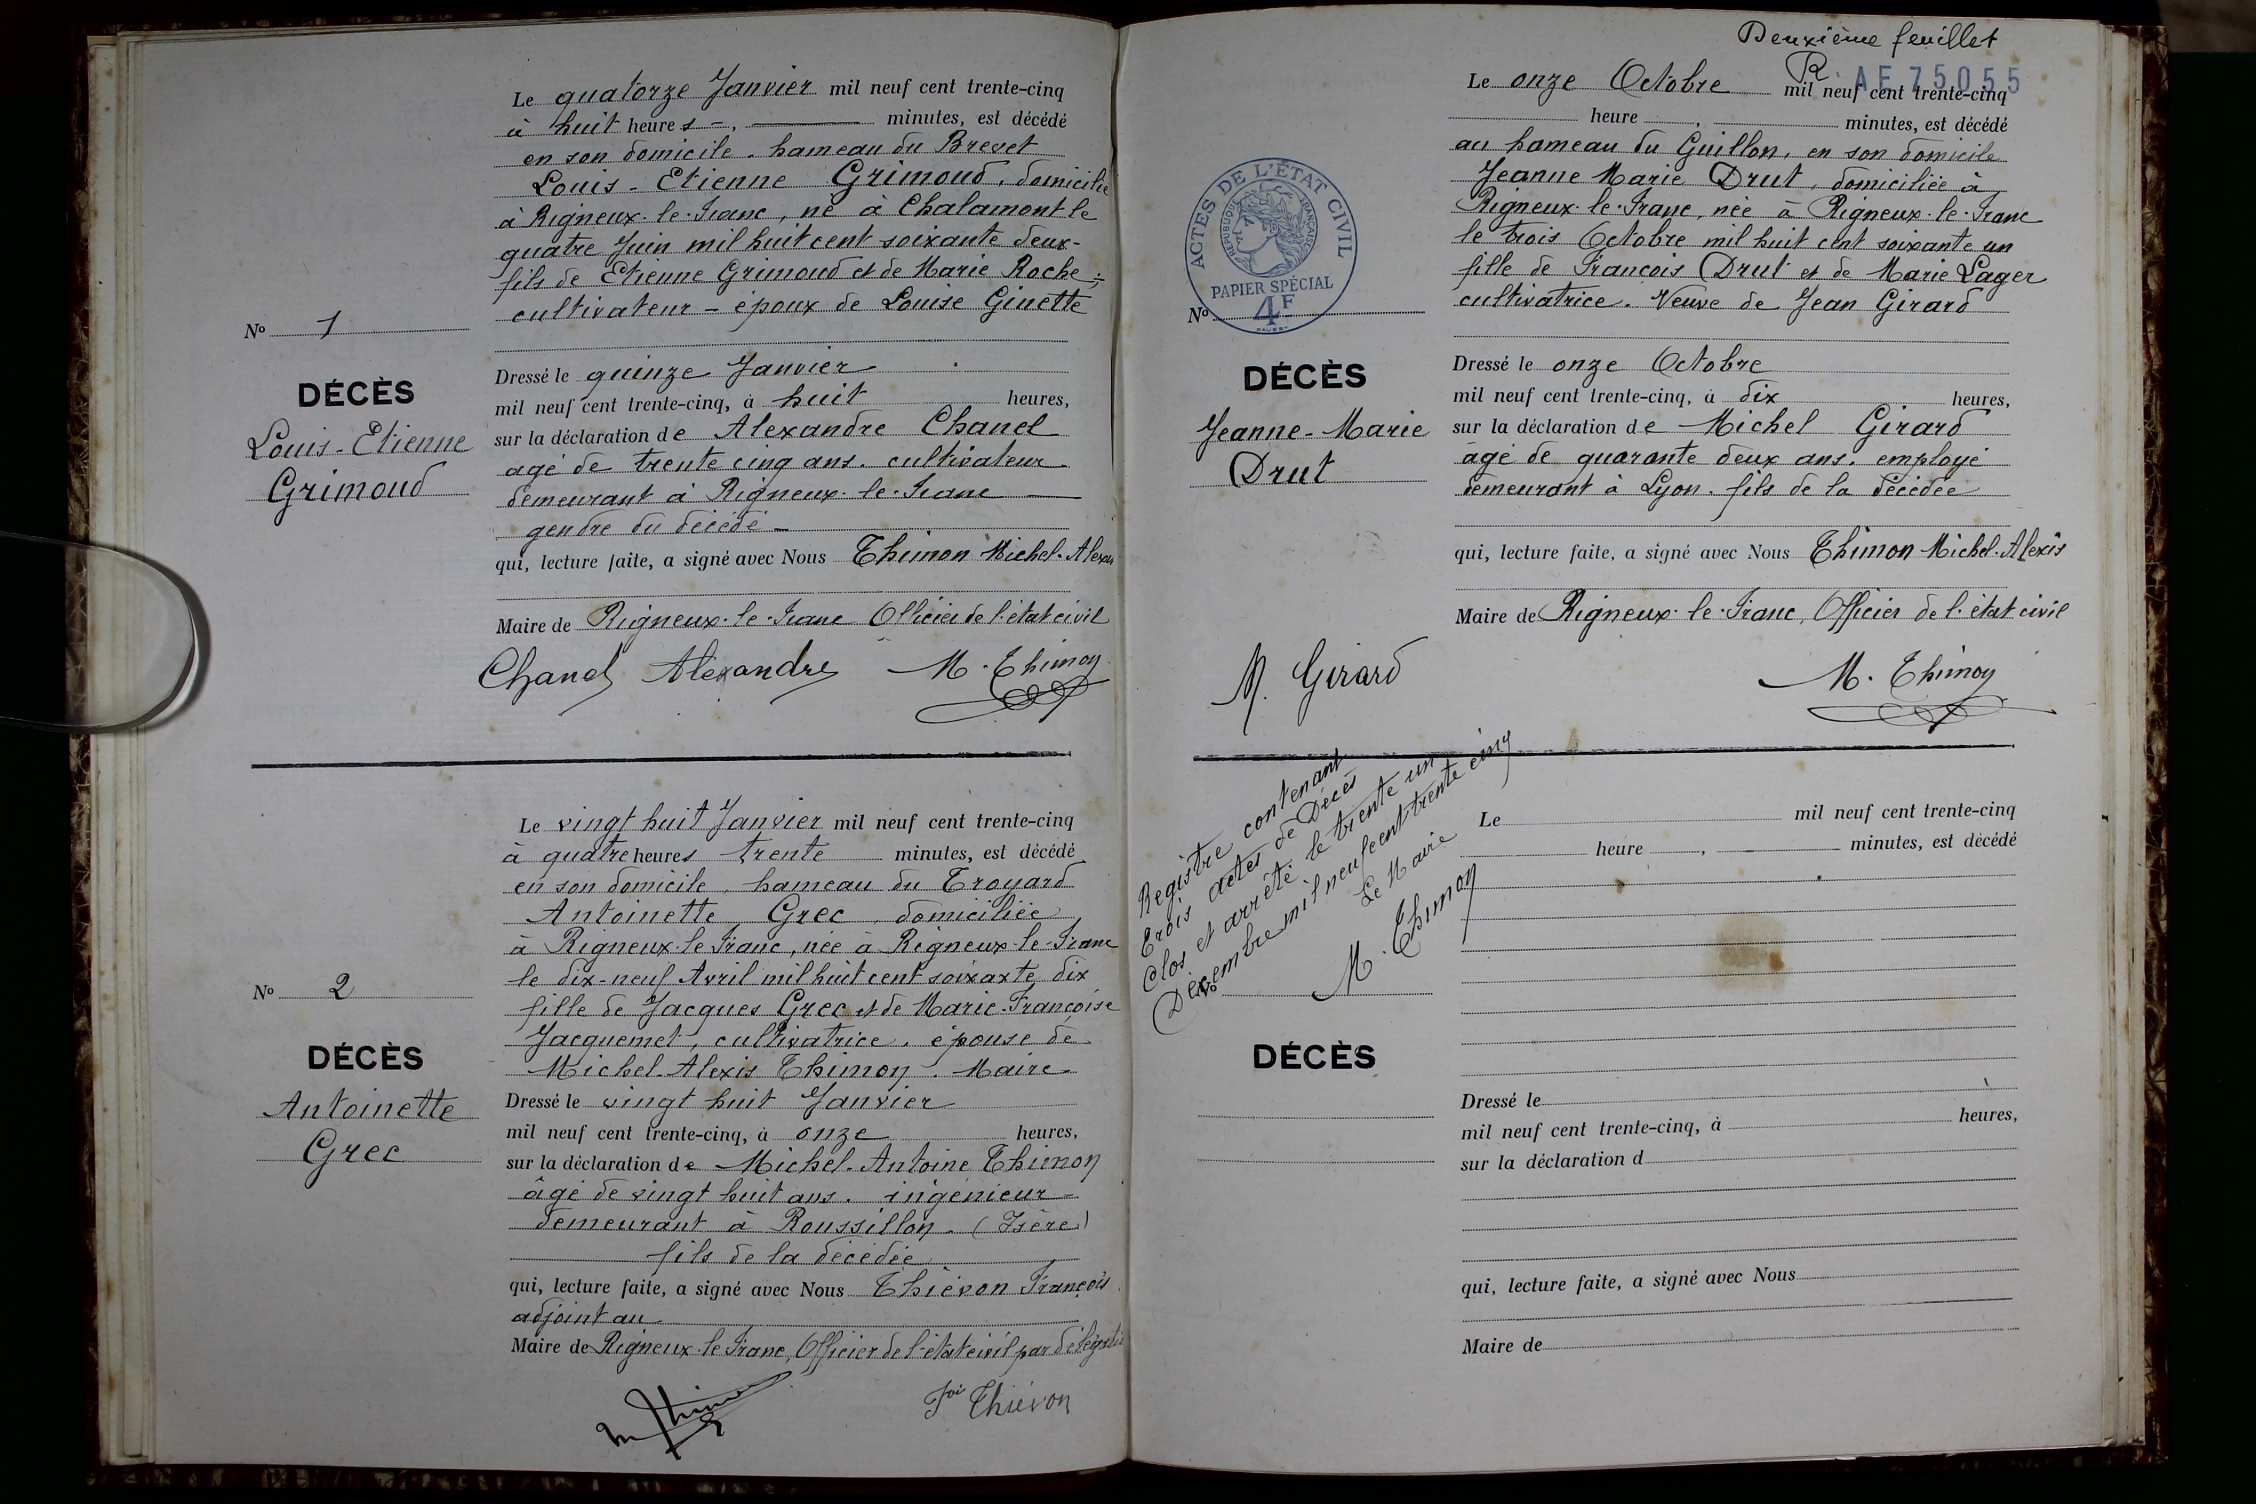 Le quatorze Janvier mil neuf cent trente-cinq
à huit heures -, minutes, est décédé
en son domicile. hameau du Brevet
Louis-Etienne Grimoud, domicilié
à Rigneux-le-Franc, né à Chalamont le
quatre Juin mil huit cent soixante deux-
fils de Etienne Grimoud et de Marie Roche
cultivateur - époux de Louise Ginette
No 1
DÉCÈS
Louis-Etienne
Grimoud
Dressé le quinze Janvier
mil neuf cent trente-cinq, à huit heures,
sur la déclaration de Alexandre Chanel
agé de trente cinq ans. cultivateur
demeurant à Rigneux-le-Franc
gendre du décédé -
qui, lecture faite, a signé avec Nous Thimon Michel-Alexis
Maire de Rigneux-le-Franc Officier de l'état civil
Chanel Alexandre M. Thimon
Le vingt huit Janvier mil neuf cent trente-cinq
à quatre heures trente minutes, est décédé
en son domicile, hameau du Troyard
Antoinette Grec, domiciliée
à Rigneux-le-Franc, née à Rigneux-le-Franc
le dix-neuf Avril mil huit cent soixaxte dix
fille de Jacques Grec et de Marie-Françoise
Jacquemet, cultivatrice, épouse de
Michel-Alexis Thimon. Maire
No 2
DÉCÈS
Antoinette
Grec
Dressé le vingt huit Janvier
mil neuf cent trente-cinq, à onze heures,
sur la déclaration de Michel-Antoine Thimon
âgé de vingt huit ans. ingénieur
demeurant à Roussillon. (Isère)
fils de la décédée
qui, lecture faite, a signé avec Nous Thiévon François
adjoint au
Maire de Rigneux-le-Franc, Officier de l'état civil par délégation
Fois Thiévon
Deuxième feuillet
R. AE 75055
Le onze Octobre mil neuf cent trente-cinq
heure , minutes, est décédé
au hameau du Guillon, en son domicile
Jeanne Marie Drut, domiciliée à
Rigneux-le-Franc, née à Rigneux-le-Franc
le trois Octobre mil huit cent soixante un
fille de François Drut et de Marie Lager
cultivatrice. Veuve de Jean Girard
ACTES DE L'ÉTAT CIVIL
RÉPUBLIQUE FRANÇAISE
PAPIER SPÉCIAL
4F
No
DÉCÈS
Jeanne-Marie
Drut
Dressé le onze Octobre
mil neuf cent trente-cinq, à dix heures,
sur la déclaration de Michel Girard
âgé de quarante deux ans. employé
demeurant à Lyon. fils de la décédée
qui, lecture faite, a signé avec Nous Thimon Michel-Alexis
Maire de Rigneux-le-Franc, Officier de l'état civil
M. Girard M. Thimon
Registre contenant
Trois actes de Décès
Clos et arrêté le trente un
Décembre mil neuf cent trente cinq
Le Maire
M. Thimon
Le mil neuf cent trente-cinq
heure , minutes, est décédé
No
DÉCÈS
Dressé le
mil neuf cent trente-cinq, à heures,
sur la déclaration d
qui, lecture faite, a signé avec Nous
Maire de